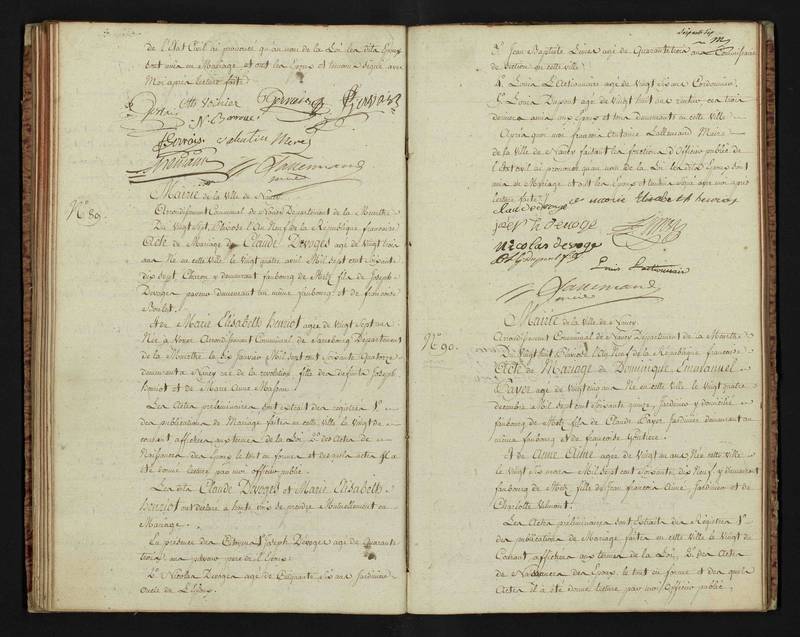 de l'Etat Civil ai prononcé qu'au nom de la Loi les dits Epoux
sont unis en Mariage et ont les Epoux et témoins signé avec
Moi après lecture faite
Valentin Mère
Lallemand
maire
N° 89.
Mairie de la Ville de Nancy
Arrondissement Communal de Nancy Département de la Meurthe
Du Vingt Sept Pluviose l'An Neuf de la République française
Acte de Mariage de Claude Devoges agé de Vingt trois
ans Né en cette Ville le Vingt quatre avril Mil Sept cent Soixante
dix Sept, demeurant faubourg de Metz fils de Joseph
Devoges demeurant au même faubourg et de françoise
Et de Marie Elisabeth henriot agée de Vingt Sept ans
Née à Arrondissement Communal de Sarrebourg Département
de la Meurthe le Six Janvier Mil Sept cent Soixante Quatorze
demeurant à Nancy rue de la revolution fille des defunts Joseph
henriot et de Marie Anne
Les Actes preliminaires sont extrait des registres 1°
des publications de Mariage faites en cette Ville le Vingt de
courant affichées aux termes de la Loi, 2° des Actes de
Naissances des Epoux le tout en forme et desquels actes il a
été donné lecture par moi officier public.
Les dits Claude Devoges et Marie Elisabeth
henriot ont déclaré à haute voix se prendre Mutuellement en
Mariage.
En présence des Citoyens 1° Joseph Devoges agé de Quarante
ans père de l'Epoux
2° Nicolas Devoges agé de Cinquante Six ans Jardinier
oncle de l'Epoux
3° Jean Baptiste agé de Quarante trois ans Commissaire
de Section en cette ville
4° Louis Lactionnaire agé de Vingt Six ans Cordonnier
Louis Dupont agé de Vingt huit ans
amis des Epoux et tous demeurants en cette Ville
Après quoi moi françois Antoine Lallemand Maire
de la Ville de Nancy faisant les fonctions d'Officier public de
l'Etat civil ai prononcé qu'au nom de la Loi les dits Epoux sont
unis en Mariage et ont les Epoux et témoins signé avec moi après
lecture faite
marie Elisabeth henriot
nicolas devoge
Louis Lactionnair
Lallemand
maire
N° 90.
Mairie de la Ville de Nancy
Arrondissement Communal de Nancy Département de la Meurthe
Du Vingt huit Pluviose l'An Neuf de la République française
Acte de Mariage de Dominique Emmanuel
Payer agé de Vingt cinq ans Né en cette ville le Vingt quatre
décembre Mil Sept cent Soixante quinze, Jardinier y domicilié
faubourg de Metz fils de Claude Payer Jardinier demeurant au
même faubourg et de françoise
Et de Anne Aimé agée de Vingt un ans Née cette ville
le Vingt Six mars Mil Sept cent Soixante dix Neuf y demeurant
faubourg de Metz fille de Jean françois Aimé Jardinier et de
Charlotte
Les Actes preliminaires sont Extrait des Régistres 1°
des publications de Mariage faites en cette Ville le Vingt du
Courant affichées aux termes de la Loi, 2° des Actes
de Naissances des Epoux, le tout en forme et des quels
Actes il a été donné lecture par moi Officier public.